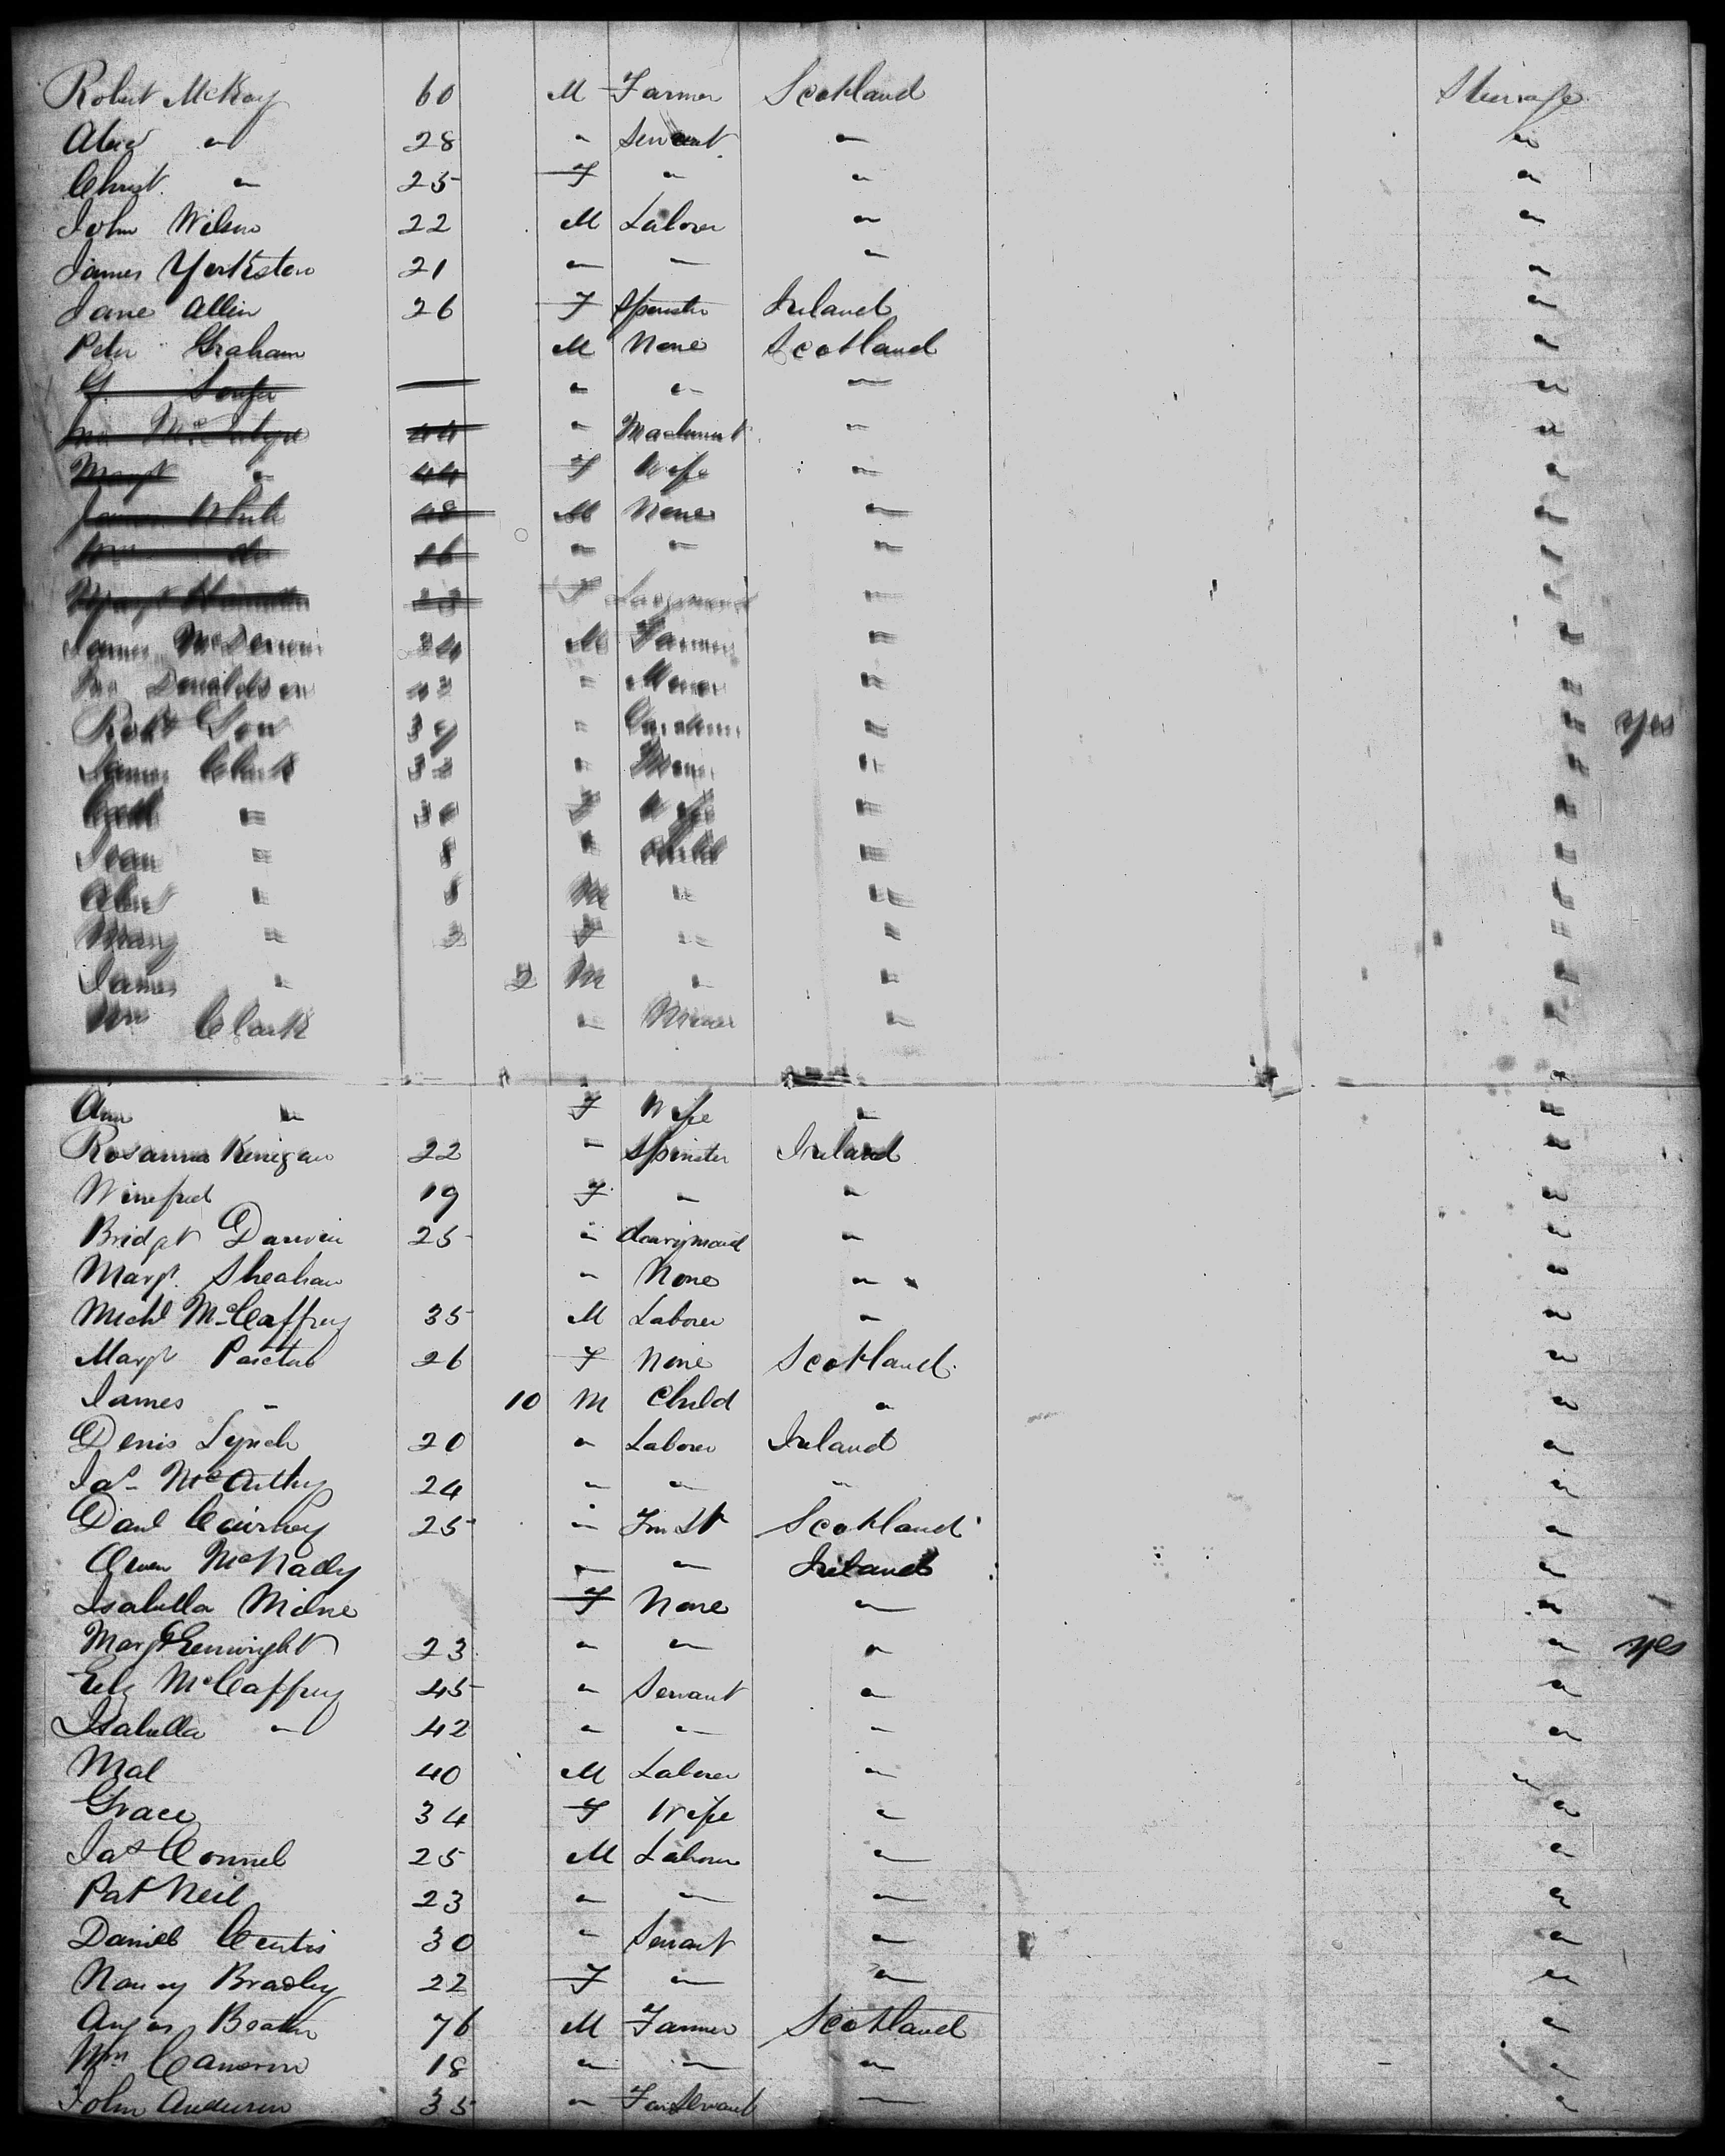 Robert McKay 60 M Farmer Scotland Steerage
Alexr " 28 " Servant " "
Christ. " 25 F " " "
John Wilson 22 M Laborer " "
James Yorkston 21 " " " "
Jane Allen 26 F Spinster Ireland "
Peter Graham M None Scotland "
" " " "
Jno McIntyre 44 " Machinist " "
Margt " 44 F Wife " "
James White 48 M None " "
Wm do 16 " " " "
Margt F " "
James 34 M Farmer " "
Jno Donaldson 43 " Miner " "
Robt " " " yes
James Clark 33 " Miner " "
" 30 F Wife " "
Jean " 8 " Child " "
" M " " "
Mary " 3 F " " "
James " 2 M " " "
Wm Clark " Miner " "
Ann " F Wife " "
Rosanna Kerrigan 22 " Spinster Ireland "
Winefred 19 F " " "
Bridget 25 " dairymaid " "
Margt. Sheahan " None " "
Michl McCaffrey 35 M Laborer " "
Margt 26 F None Scotland "
James " 10 M Child " "
Denis Lynch 20 " Laborer Ireland "
Jas McArthy 24 " " " "
Danl Cairney 25 " Fm St Scotland "
Owen McNally " " Ireland "
Isabella Milne F None " "
Margt Enright 23 " " " " yes
Eliz McCaffrey 45 " Servant " "
Isabella " 42 " " " "
Mal 40 M Laborer " "
Grace 34 F Wife " "
Jas Connel 25 M Laborer " "
Pat Neil 23 " " " "
Daniel Curtis 30 " Servant " "
Nancy Bradley 22 F " " "
Angus Beaton 76 M Farmer Scotland "
Wm Cameron 18 " " " "
John Anderson 35 " Farm Servant " "